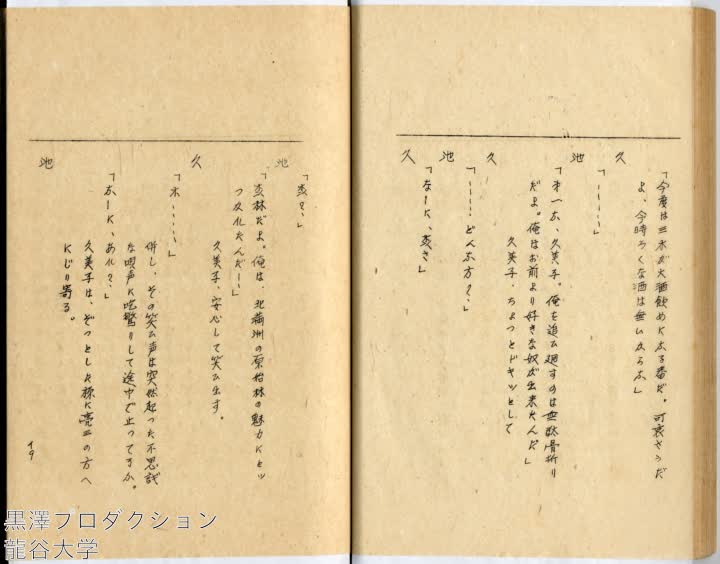 久「今度は三木が大酒飲めになる番だ。可哀さうだ
よ、今時ろくな酒は無いからな」
池「……」
久「第一な、久美子。俺を追ひ廻すのは無駄骨折り
だよ。俺はお前より好きな奴が出来たんだ」
久美子、ちょっとドキッとして
久「……どんな方?」
池「なーに、
久「
池「
林だよ。俺は、北満洲の原始林の魅力にとッ
つかれたんだ!」
久美子、安心して笑ひ出す。
久「ホ……」
併し、その笑ひ声は突然起った不思議
な唄声に吃驚りして途中で止ってるか。
「なーに、あれ?」
久美子は、ぞっとした様に亮三の方へ
にじり寄る。
池
19
黒澤プロダクション
龍谷大学